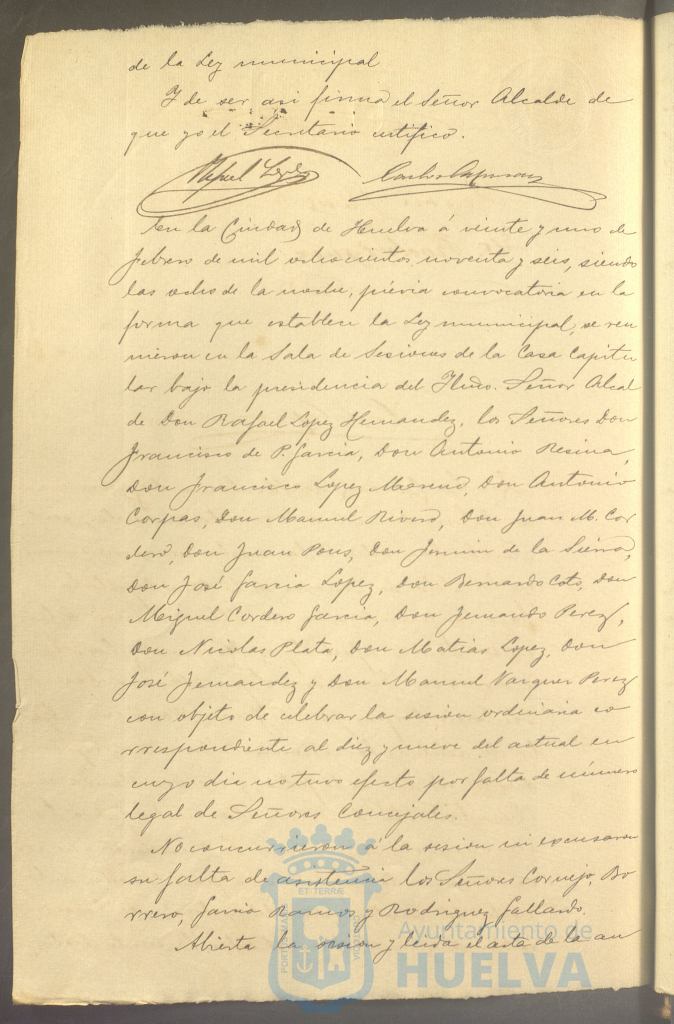 de la Ley municipal
Y de ser asi firma el Señor Alcalde de
que yo el Secretario certifico.
Rafael Lopez Carlos
En la Ciudad de Huelva á veinte y uno de
febrero de mil ochocientos noventa y seis, siendo
las ocho de la noche, prévia convocatoria en la
forma que establece la Ley municipal, se reu
nieron en la Sala de Sesiones de la Casa Capitu
lar bajo la presidencia del Iltmo. Señor Alcal
de Don Rafael Lopez Hernandez, los Señores Don
Francisco de P. Garcia, Don Antonio Resina,
Don Francisco Lopez Moreno, Don Antonio
Corpas, Don Manuel Rivero, Don Juan M. Cor
dero, Don Juan Pons, Don Fermin de la Sierra,
Don José Garcia Lopez, Don Bernardo Coto, Don
Miguel Cordero Garcia, Don Fernando Perez,
Don Nicolas Plata, Don Matias Lopez, Don
José Fernandez y Don Manuel Vazquez Perez
con objeto de celebrar la sesion ordinaria co
rrespondiente al diez y nueve del actual en
cuyo dia no tuvo efecto por falta de número
legal de Señores Concejales.
No concurrieron á la sesion ni excusaron
su falta de asistencia los Señores Cornejo, Bo
rrero, Garcia Ramos y Rodriguez Gallardo.
Abierta la sesion y leida el acta de la an
PORTUS MARIS ET TERRÆ CUSTODIA
Ayuntamiento de
HUELVA